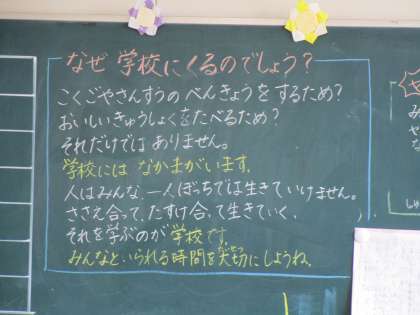 なぜ学校にくるのでしょう?
こくごやさんすうのべんきょうをするため?
おいしいきゅうしょくをたべるため?
それだけではありません。
学校にはなかまがいます。
人はみんな一人ぼっちでは生きていけません。
ささえ合って、たすけ合って生きていく。
それを学ぶのが学校です。
みんなといられる時間を大切にしようね。